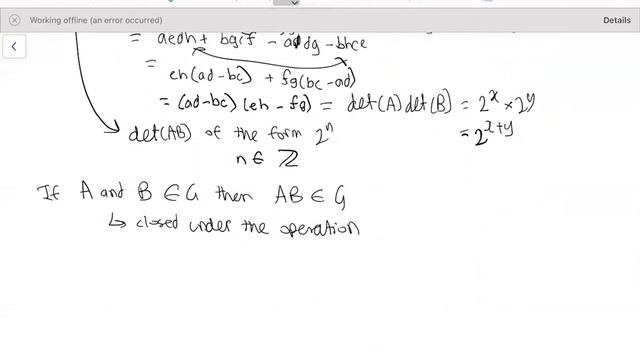 Working offline (an error occurred) Details
= aedh + bgcf - adfg - bhce
=
eh(ad-bc) + fg(bc-ad)
= (ad-bc)(eh-fg) = det(A)det(B) = 2^x × 2^y
= 2^{x+y}
↳ det(AB) of the form 2^n
n ∈ ℤ
If A and B ∈ G then AB ∈ G
↳ closed under the operation